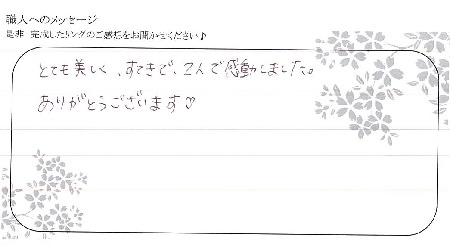 職人へのメッセージ
是非 完成したリングのご感想をお聞かせください♪
とても美しく、すてきで、2人で感動しました。
ありがとうございます♡